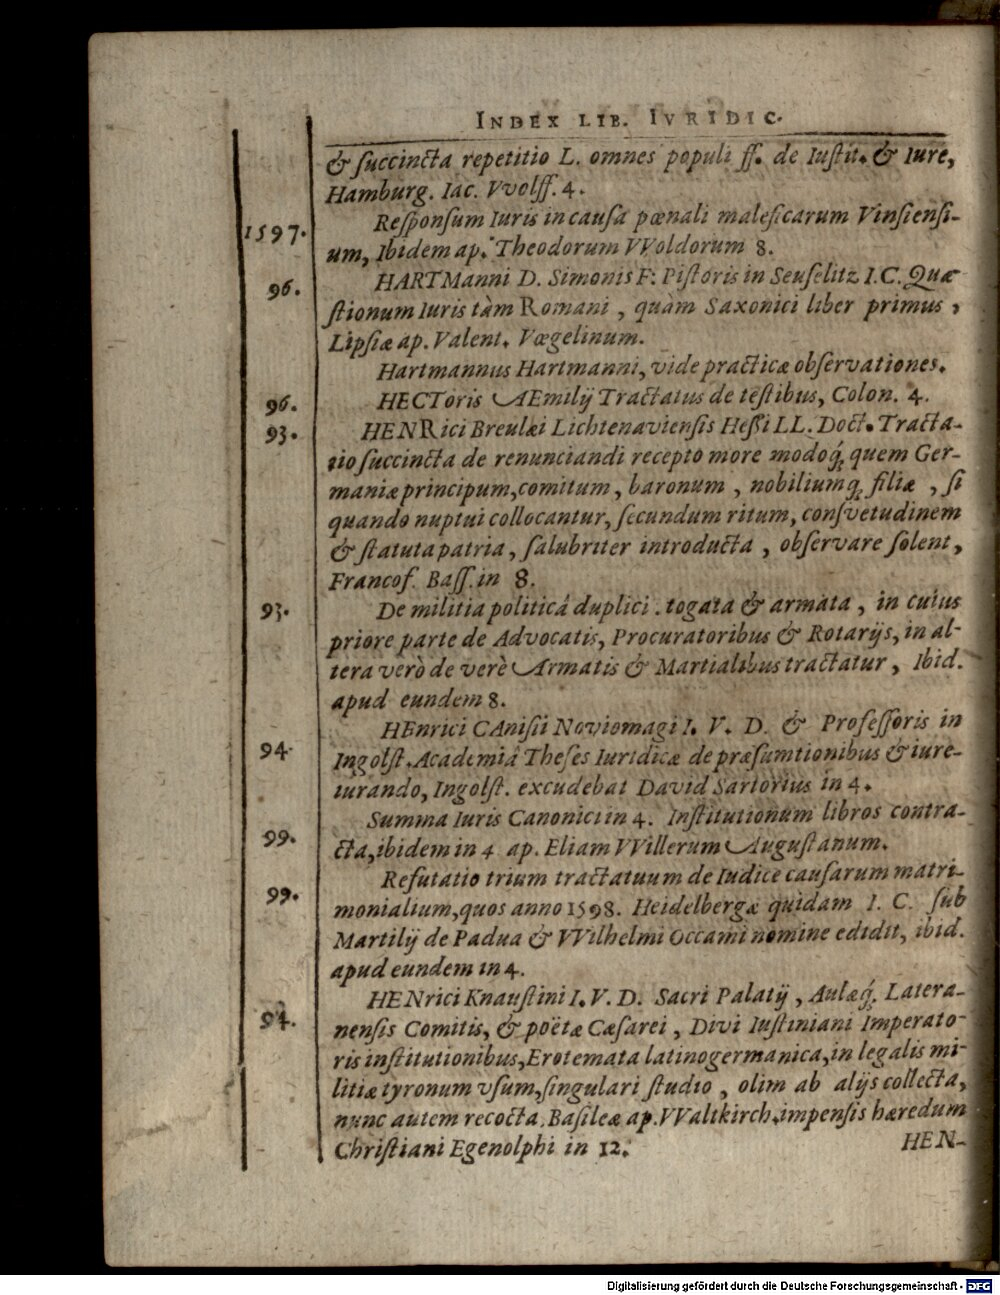 INDEX LIB. IVRIDIC.
& ſuccincta repetitio L. omnes populi ff. de Iuſtit. & Iure,
Hamburg. Iac. VVolff. 4.
Reſponſum Iuris in cauſa pœnali maleficarum Vinſienſi-
1597. um, Ibidem ap. Theodorum VVoldorum 8.
96. HARTManni D. Simonis F: Piſtoris in Seuſelitz I.C. Quæ
ſtionum Iuris tàm Romani, quàm Saxonici liber primus,
Lipſiæ ap. Valent. Vœgelinum.
Hartmannus Hartmanni, vide practicæ obſervationes.
96. HECToris AEmilij Tractatus de teſtibus, Colon. 4.
93. HENRici Breulæi Lichtenavienſis Heſſi LL. Doct. Tracta-
tio ſuccincta de renunciandi recepto more modoq́; quem Ger-
maniæ principum, comitum, baronum, nobiliumq; filiæ, ſi
quando nuptui collocantur, ſecundum ritum, conſvetudinem
& ſtatuta patria, ſalubriter introducta, obſervare ſolent,
Francof. Baſſ. in 8.
93. De militia politicá duplici. togata & armata, in cuius
priore parte de Advocatis, Procuratoribus & Rotarijs, in al-
tera verò de verè Armatis & Martialibus tractatur, Ibid.
apud eundem 8.
HEnrici CAniſii Noviomagi I. V. D. & Profeſſoris in
94. Ingolſt. Academiá Theſes Iuridicæ de præſumtionibus & iure-
iurando, Ingolſt. excudebat David Sartorius in 4.
Summa Iuris Canonici in 4. Inſtitutionum libros contra-
99. cta, ibidem in 4 ap. Eliam VVillerum Auguſtanum.
Refutatio trium tractatuum de Iudice cauſarum matri-
99. monialium, quos anno 1598. Heidelbergæ quidam I. C. ſub
Martilij de Padua & VVilhelmi Occami nomine edidit, ibid.
apud eundem in 4.
HENrici Knauſtini I. V. D. Sacri Palatij, Aulæq́; Latera-
94. nenſis Comitis, & poëtæ Cæſarei, Divi Iuſtiniani Imperato-
ris inſtitutionibus, Erotemata latinogermanica, in legalis mi-
litiæ tyronum vſum, ſingulari ſtudio, olim ab alijs collecta,
nunc autem recocta, Baſileæ ap. VValtkirch. impenſis hæredum
Chriſtiani Egenolphi in 12.
HEN-
Digitalisierung gefördert durch die Deutsche Forschungsgemeinschaft - DFG